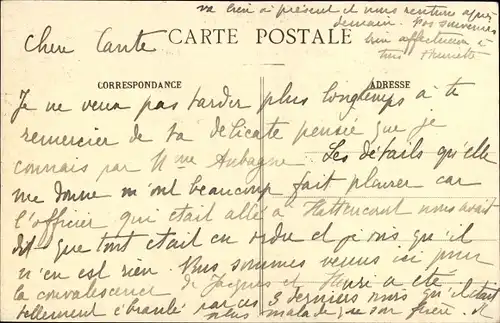 va bien à présent et nous rentrons après
demain. Vos souvenirs
bien affectueux à
tous Henriette
Chere Tante
CARTE POSTALE
CORRESPONDANCE
ADRESSE
Je ne veux pas tarder plus longtemps à te
remercier de ta délicate pensée que je
connais par Mme Aubagne. Les détails qu'elle
me donne m'ont beaucoup fait plaisir car
l'officier qui était allé à Hattencourt nous avait
dit que tout était en ordre et je vois qu'il
n'en est rien. Nous sommes venus ici pour
la convalescence de Jacques et Henri a été
tellement ébranlé par ces 3 derniers mois qu'il était
plus malade que son frère. Il